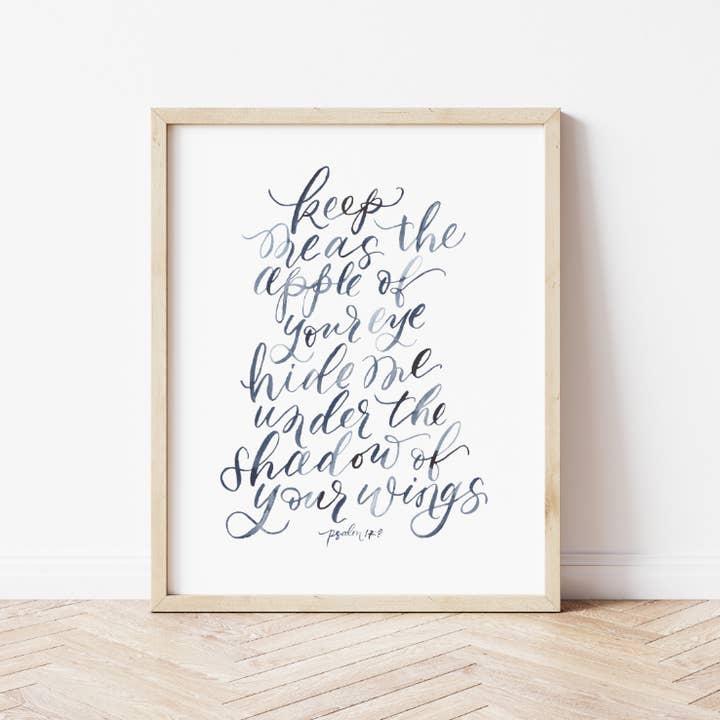 keep
me as the
apple of
your eye
hide me
under the
shadow of
your wings
psalm 17:8